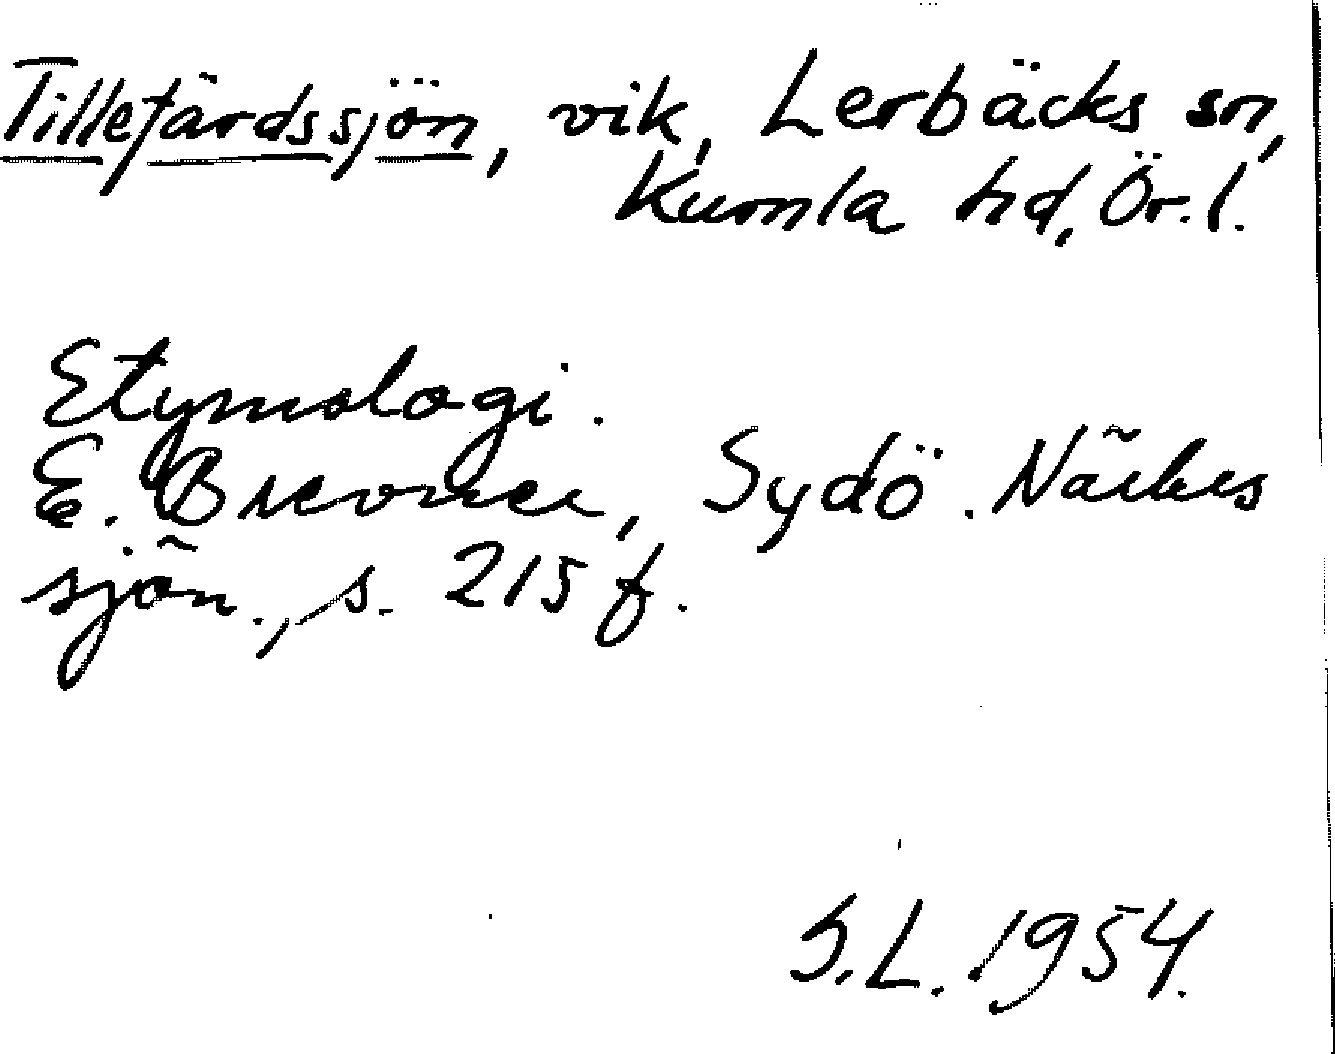 Tillefärdssjön, vik, Lerbäcks sn,
Kumla hd, Ör. l.
Etymologi.
E. Brevner, Sydö. Närkes
sjön., s. 215 f.
S.L. 1954.